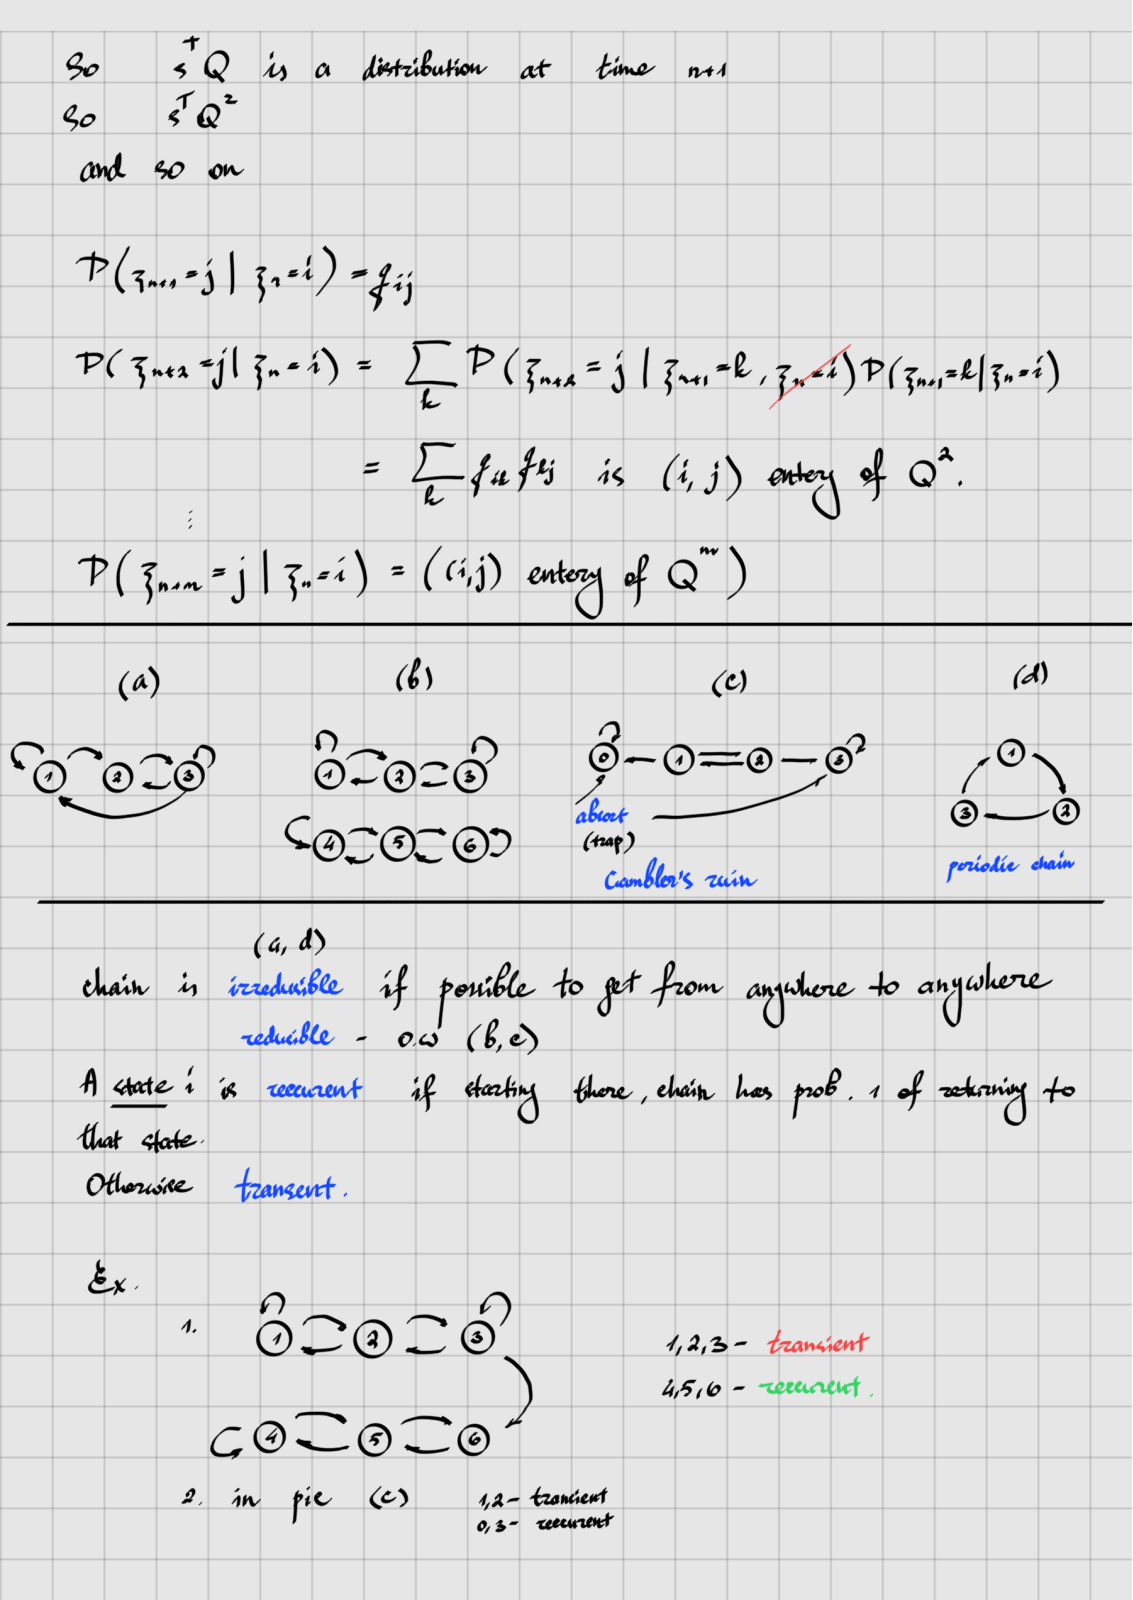 So sᵀQ is a distribution at time n+1
So sᵀQ²
and so on
P(ξₙ₊₁=j | ξₙ=i) = qᵢⱼ
P(ξₙ₊₂=j | ξₙ=i) = ∑ₖ P(ξₙ₊₂=j | ξₙ₊₁=k, ξₙ=i) P(ξₙ₊₁=k | ξₙ=i)
= ∑ₖ qᵢₖ qₖⱼ is (i,j) entery of Q².
⋮
P(ξₙ₊ₘ=j | ξₙ=i) = ((i,j) entery of Qᵐ)
(a) (b) (c) (d)
1 2 3
1 2 3
4 5 6
0 1 2 3
abort
(trap)
Gambler's ruin
1
3 2
periodic chain
(a, d)
chain is irreducible if possible to get from anywhere to anywhere
reducible - o.w (b, c)
A state i is reccurent if starting there, chain has prob. 1 of returning to
that state.
Otherwise transent.
Ex.
1. 1 2 3
4 5 6
1,2,3 - transient
4,5,6 - reccurent.
2. in pic (c) 1,2 - trancient
0,3 - reccurent